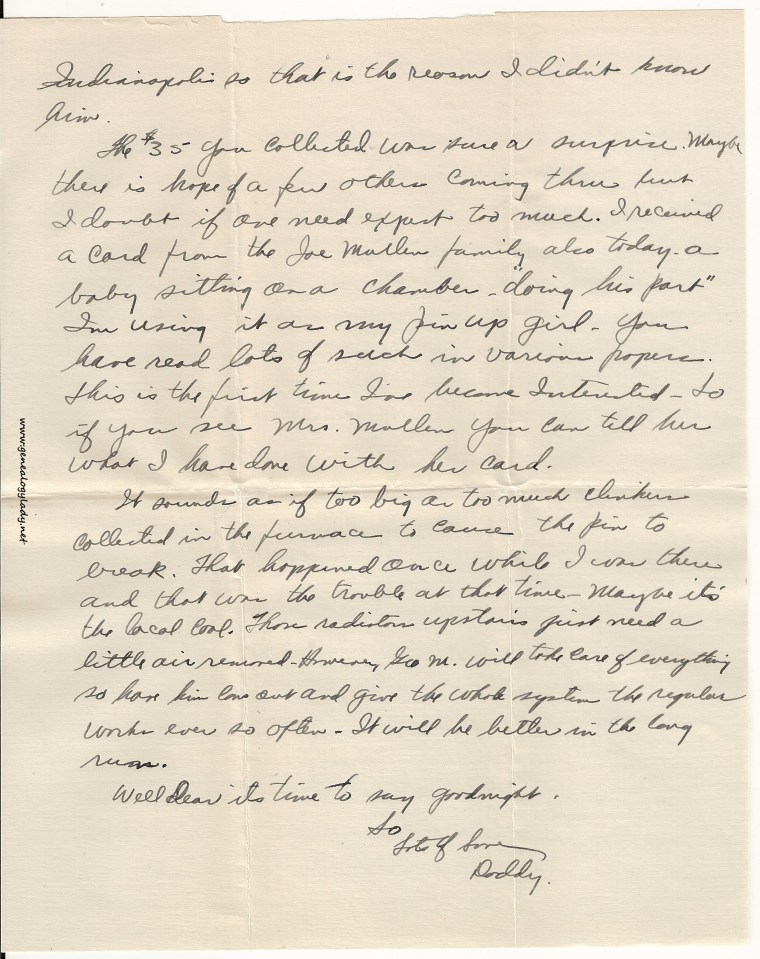 Indianapolis so that is the reason I didn't know
him.
The $35 you collected was sure a surprise. Maybe
there is hope of a few others coming thru but
I doubt if one need expect too much. I received
a card from the Joe Mullen family also today - a
baby sitting on a chamber - "doing his part"
I'm using it as my pin up girl - You
have read lots of such in various papers.
This is the first time I've become Interested - So
if you see Mrs. Mullen you can tell her
what I have done with her card.
It sounds as if too big or too much clinkers
collected in the furnace to cause the pin to
break. That happened once while I was there
and that was the trouble at that time - Maybe it's
the local coal. Those radiators upstairs just need a
little air removed - However, Geo M. will take care of everything
so have him come out and give the whole system the regular
works ever so often - It will be better in the long
run.
Well Dear its time to say goodnight.
So
Lots of Love
Daddy.
www.genealogylady.net